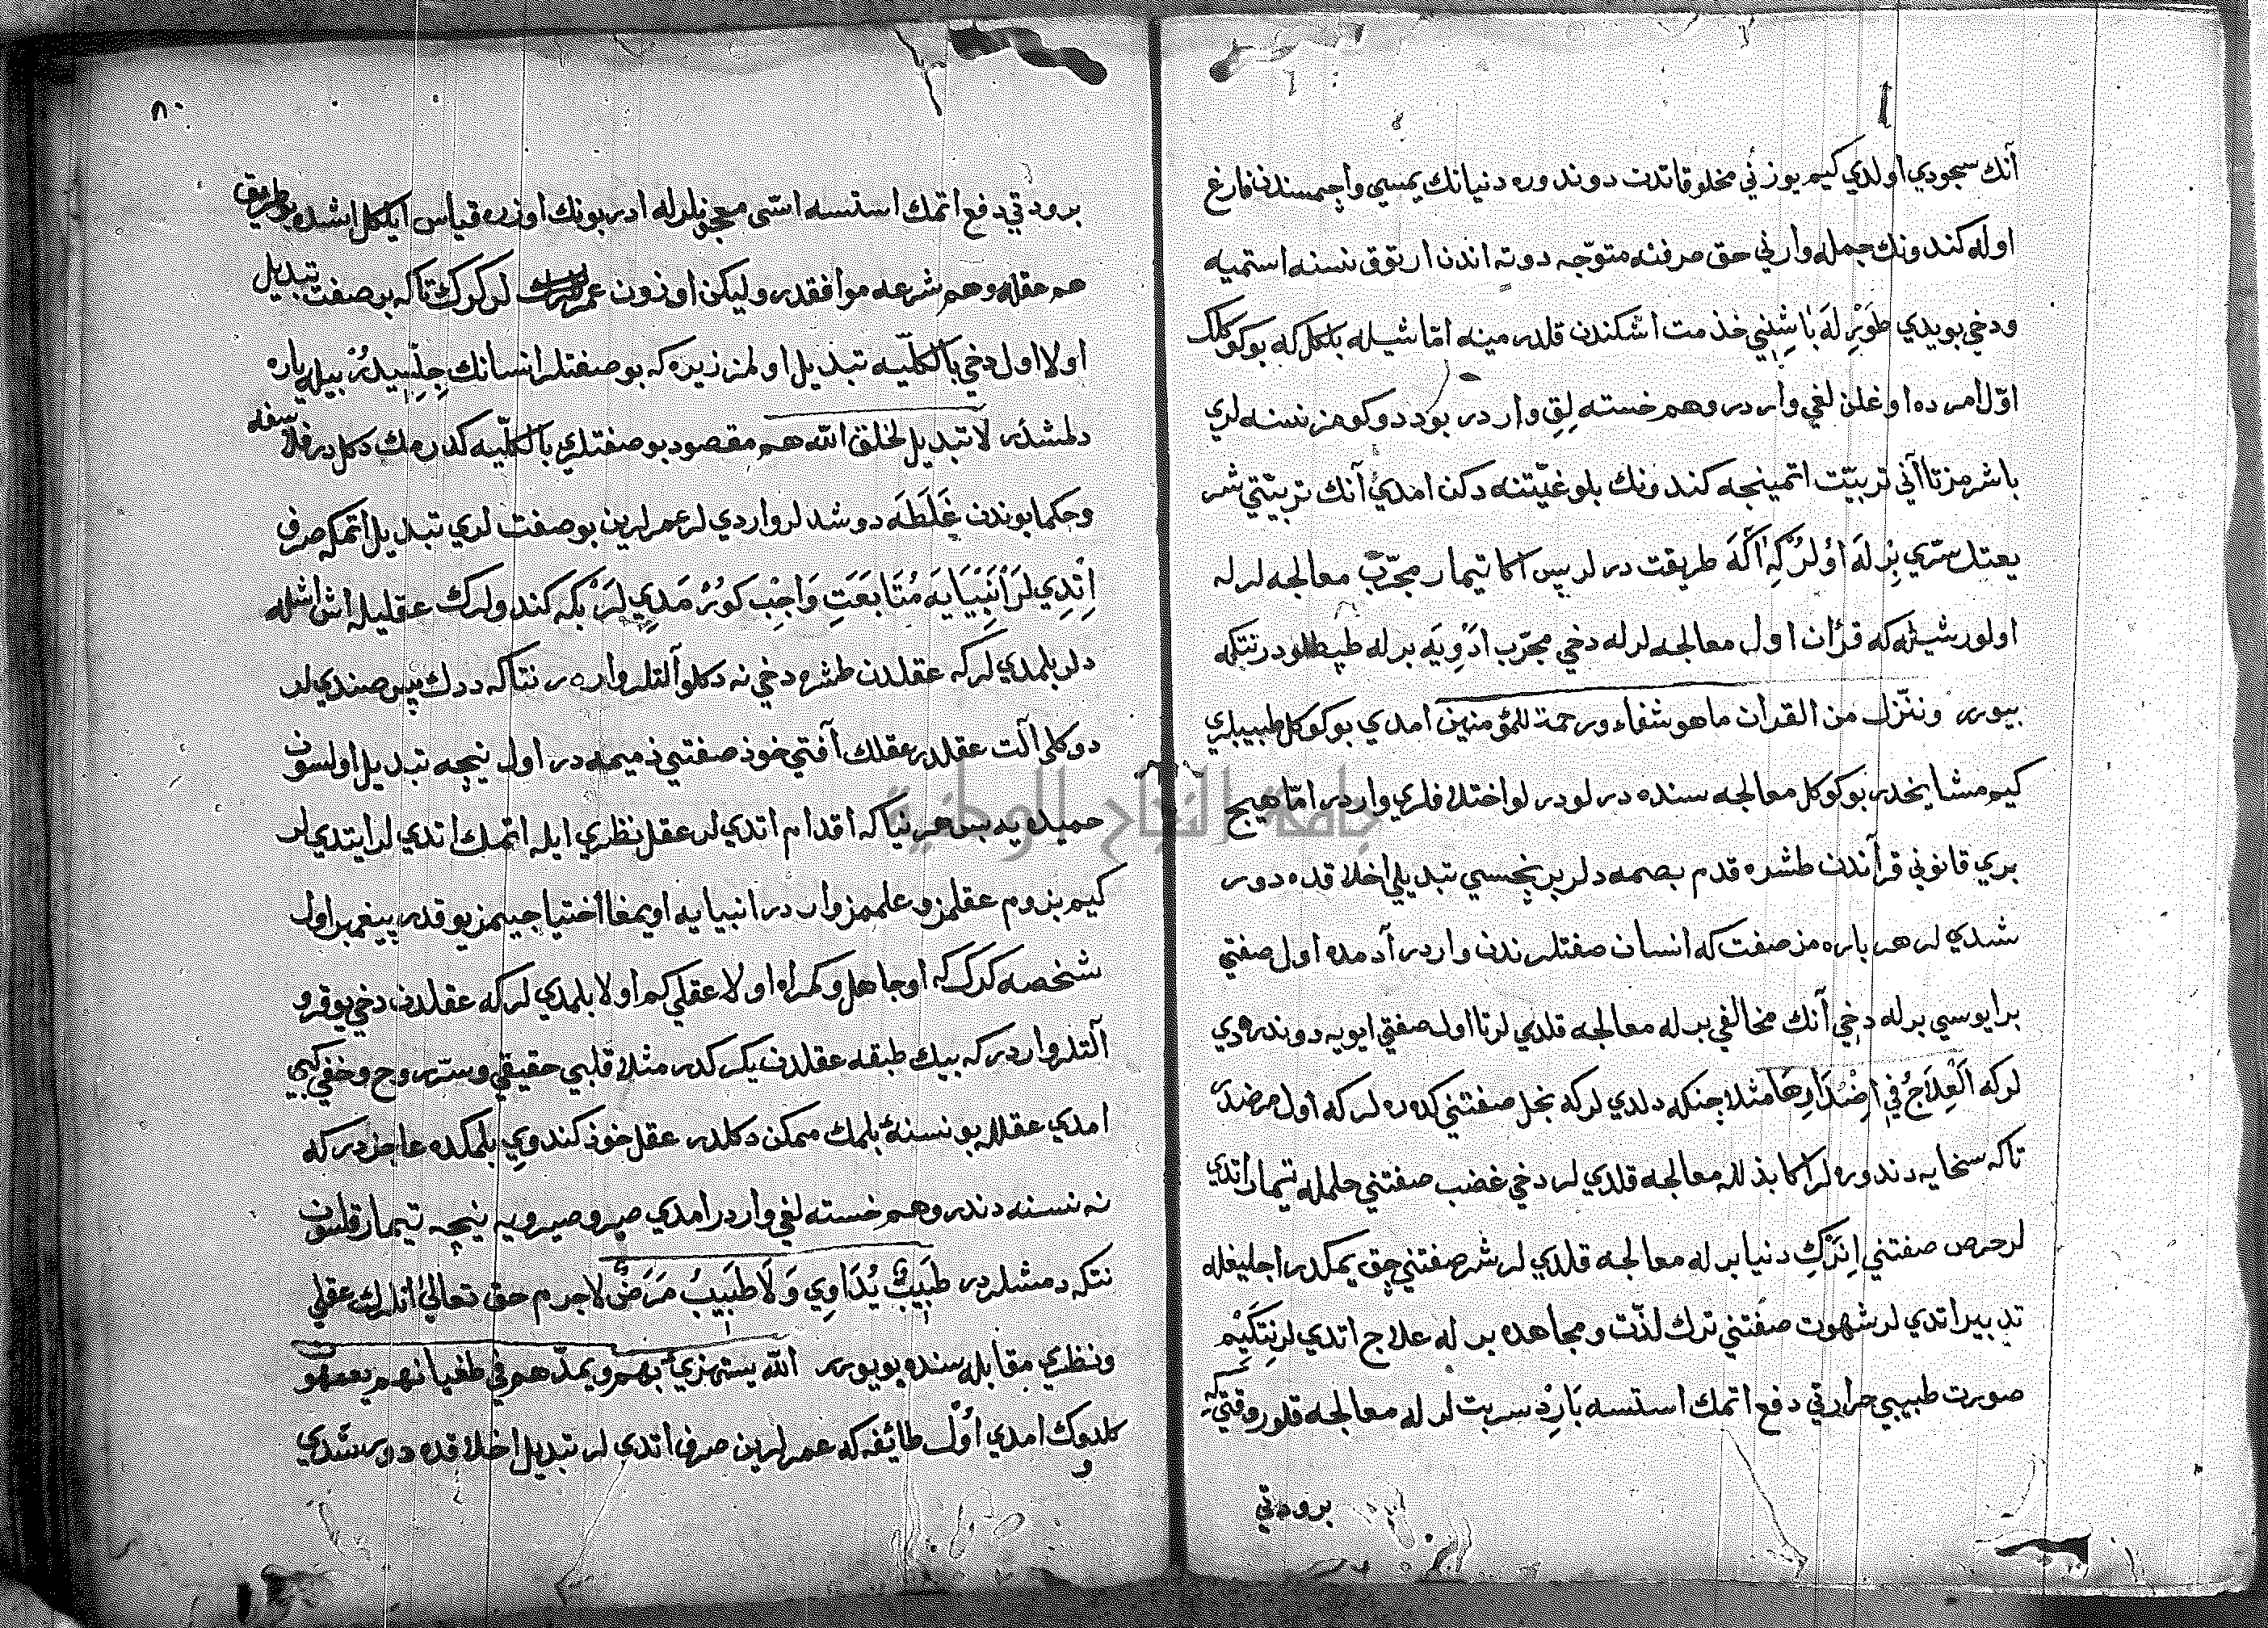 آنك سجودي اولدي كيم يوزني مخلوقاتدن دوندوره دنيانك يمسي واچمسندن فارغ
اوله كندونك جمله وارني حق صرفنه متوجه دوته اندن ارتوق نسنه استميه
ودخي بويدي طور له باشني خذمت اشكندن قلدرمينه امّا شيله بلكل كه بو كوكلك
اوّل امرده اوغلن لغي واردر وهم خسته لقي واردر بو ددوكومز نسنه لري
باشرمز تا آني تربيّت اتمينجه كندونك بلوغيّتنه دكن امدي آنك تربيّتي شر
يعتله سرّي برله اولر كه آكه طريقت درلر پس اكا تيمار مجرّب معالجه لرله
اولور شيله كه قرآن اول معالجه لرله دخي مجرّب ادويه برله طپطلودر نتكه
بيورر وننزّل من القرآن ما هو شفاء ورحمة للمؤمنين امدي بو كوكل طبيبلري
كيم مشايخدر بو كوكل معالجه سنده درلو درلو اختلافلري واردر امّا هيچ
بري قانوني قرآندن طشره قدم بصمه دلر بر نجسي تبديلي اخلاقده دور
شدي لر هر ياره مز صفت كه انسان صفتلرندن واردر آدمده اول صفتي
برايوسي برله دخي آنك مخالفي برله معالجه قلدي لر تا اول صفتي ايويه دوندردي
لركه العلاج في اضدادها مثلا چنكه دلدي لركه بخل صفتني كدره لركه اول مرضدر
تاكه سخايه دندوره لر اكا بذلله معالجه قلدي لر دخي غضب صفتني حلمله تيمار اتدي
لر حرص صفتني ترك دنيا برله معالجه قلدي لر شره صفتني چق يمكدر اجليغله
تدبير اتدي لر شهوت صفتني ترك لذّت ومجاهده برله علاج اتدي لر نتكيم
صورت طبيبي حرارتي دفع اتمك استسه بارد سربت لرله معالجه قلور وقتي كه
برودتي
٨٠
برودتي دفع اتمك استسه اسّى معجونلرله ادر بونك اوزره قياس ايلكل اشده بو طريق
هم عقله وهم شرعه موافقدر وليكن اوزون عمر لر كرك تاكه بر صفت تبديل
اولا اول دخي بالكلّيه تبديل اولمز زيره كه بو صفتلر انسانك جبلّسيدر بيله ياره
دلمشدر لا تبديل لخلق الله هم مقصود بو صفتلري بالكلّيه كدرمك دكلدر فلاسفه
وحكما بوندن غلطه دوشدلر واردي لر عمرلرين بو صفت لري تبديل اتمكه صرف
اتدي لر انبيايه متابعت واجب كورمدي لر بكه كندولرك عقليله اش اشله
دلر بلمدي لركه عقلدن طشره دخي نه دكلو آلتلر واردر نتاكه ددك پس صندي لر
دوكلي آلت عقلدر عقلك آفتي خوذ صفتي ذميمه در اول نيجه تبديل اولسون
حميده يه پس هر نياكه اقدام اتدي لر عقل نظري ايله اتمك اتدي لر ايتدي لر
كيم بزوم عقلمز وعلممز واردر انبيايه اويمغا اختياجيمز يوقدر پيغمبر اول
شخصه كرك كه اوجاهل وكمراه اولا عقلي كم اولا بلمدي لركه عقلدن دخي يوقرو
آلتلر واردر كه بيك طبقه عقلدن يكركدر مثلا قلبي حقيقي وسرّ روح وخفي كبي
امدي عقلله بو نسنه بلمك ممكن دكلدر عقل خوذ كندوي بلمكده عاجزدر كه
نه نسنه دندر وهم خسته لغي واردر امدي صيرو صيرويه نيجه تيمار قلسون
نتكه دمشلردر طبيب يداوي ولا طبيب مرض لاجرم حق تعالى انلرك عقلي
ونظري مقابله سنده بويورر الله يستهزئ بهم ويمدّهم في طغيانهم يعمهو
كلدوك امدي اول طائفه كه عمرلرين صرف اتدي لر تبديل اخلاقده دورشدي